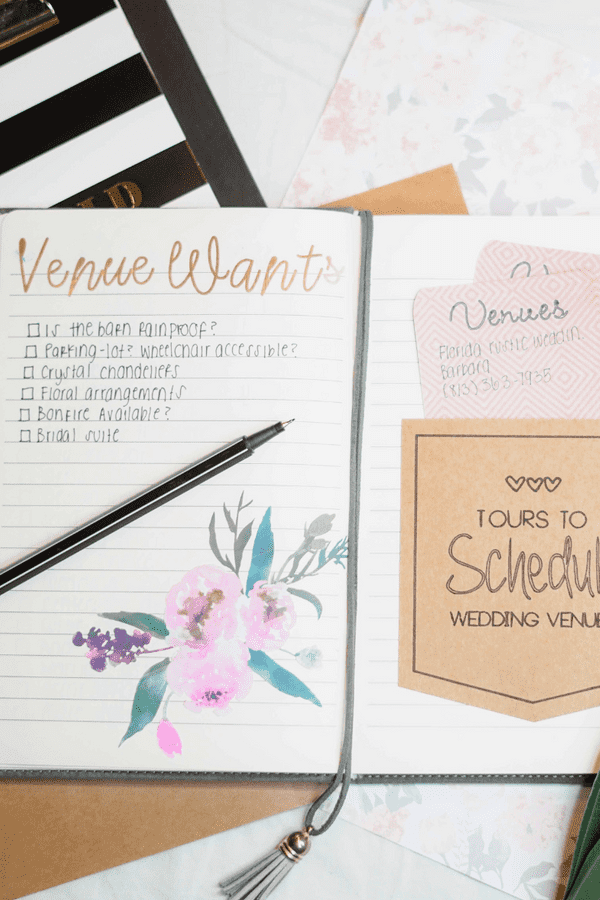 LD
Venue Wants
Is the barn rainproof?
Parking-lot? wheelchair accessible?
Crystal chandeliers
Floral arrangements
Bonfire Available?
Bridal suite
Venues
Florida rustic
Barbara
(813)363-7935
TOURS TO
Schedul
WEDDING VENUE